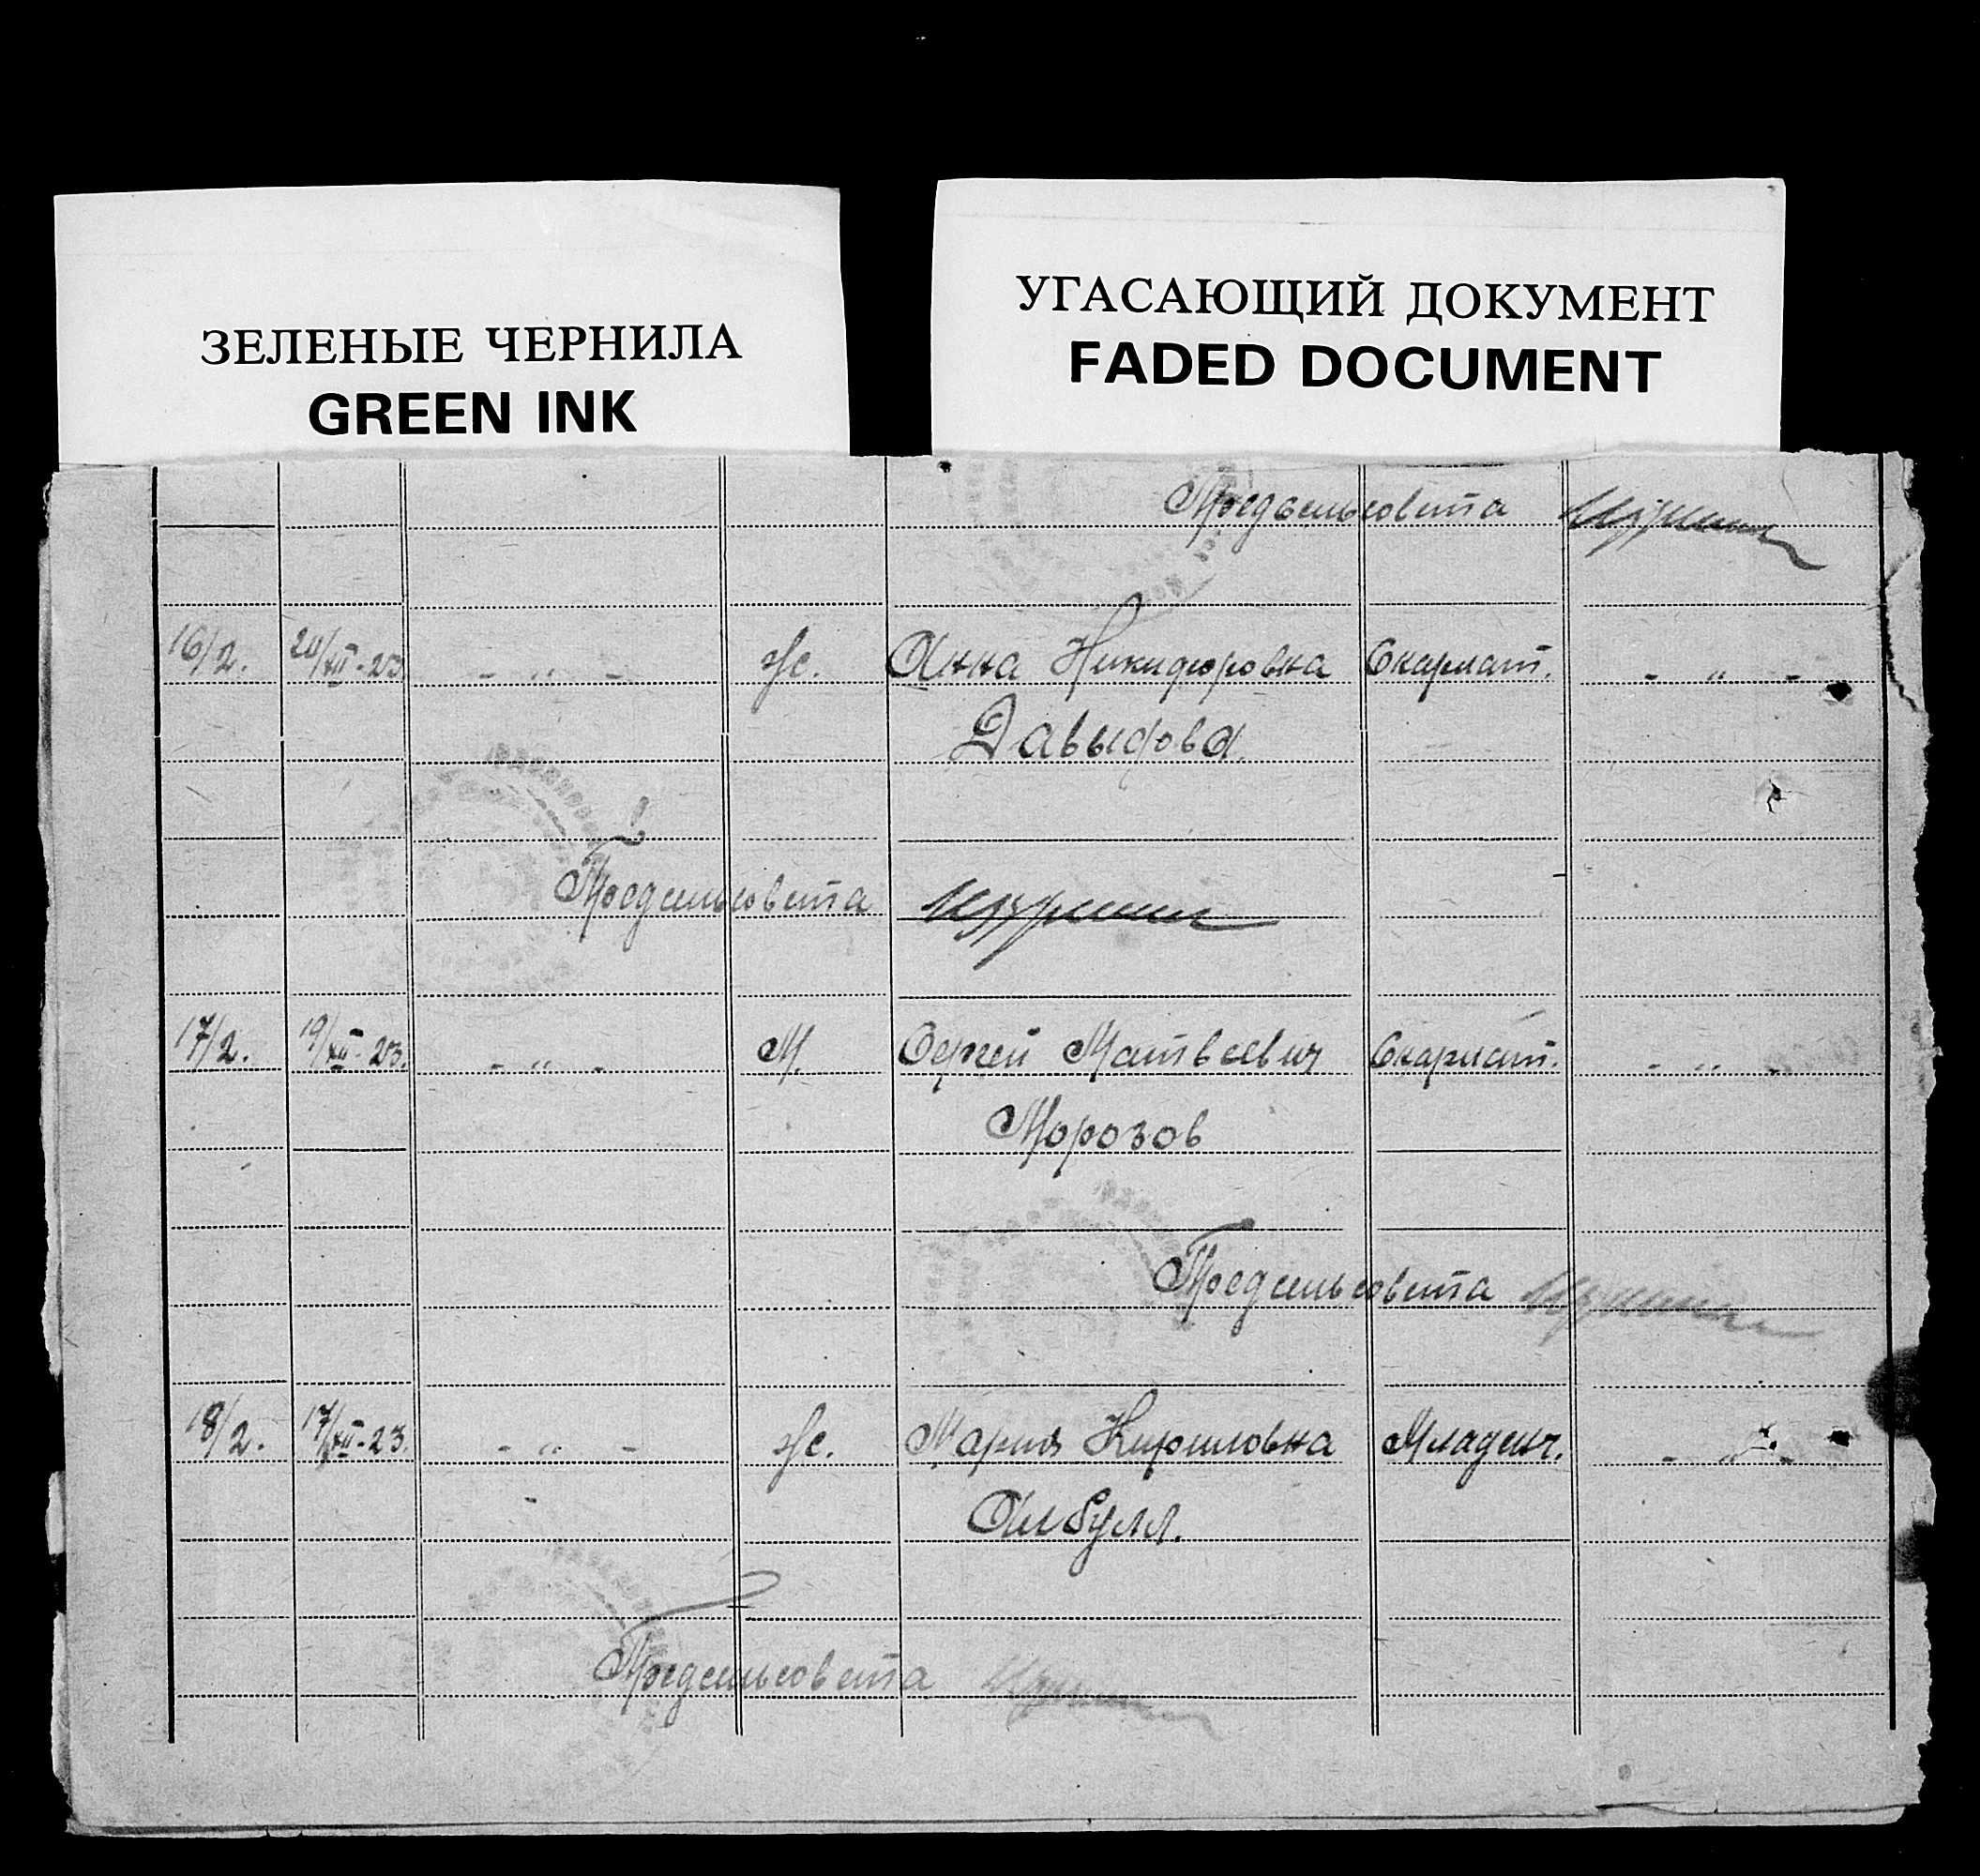 ЗЕЛЕНЫЕ ЧЕРНИЛА
GREEN INK
УГАСАЮЩИЙ ДОКУМЕНТ
FADED DOCUMENT
Предсельсовета
16/2. 20/XII-23 - " - Ж. Анна Никифоровна Скарлат. - " -
Давыдова.
Предсельсовета
17/2. 19/XII-23. - " - М. Сергей Матвеевич Скарлат. - " -
Морозов
Предсельсовета
18/2. 17/XII-23. - " - Ж. Мария Кириловна Младенч. - " -
Предсельсовета